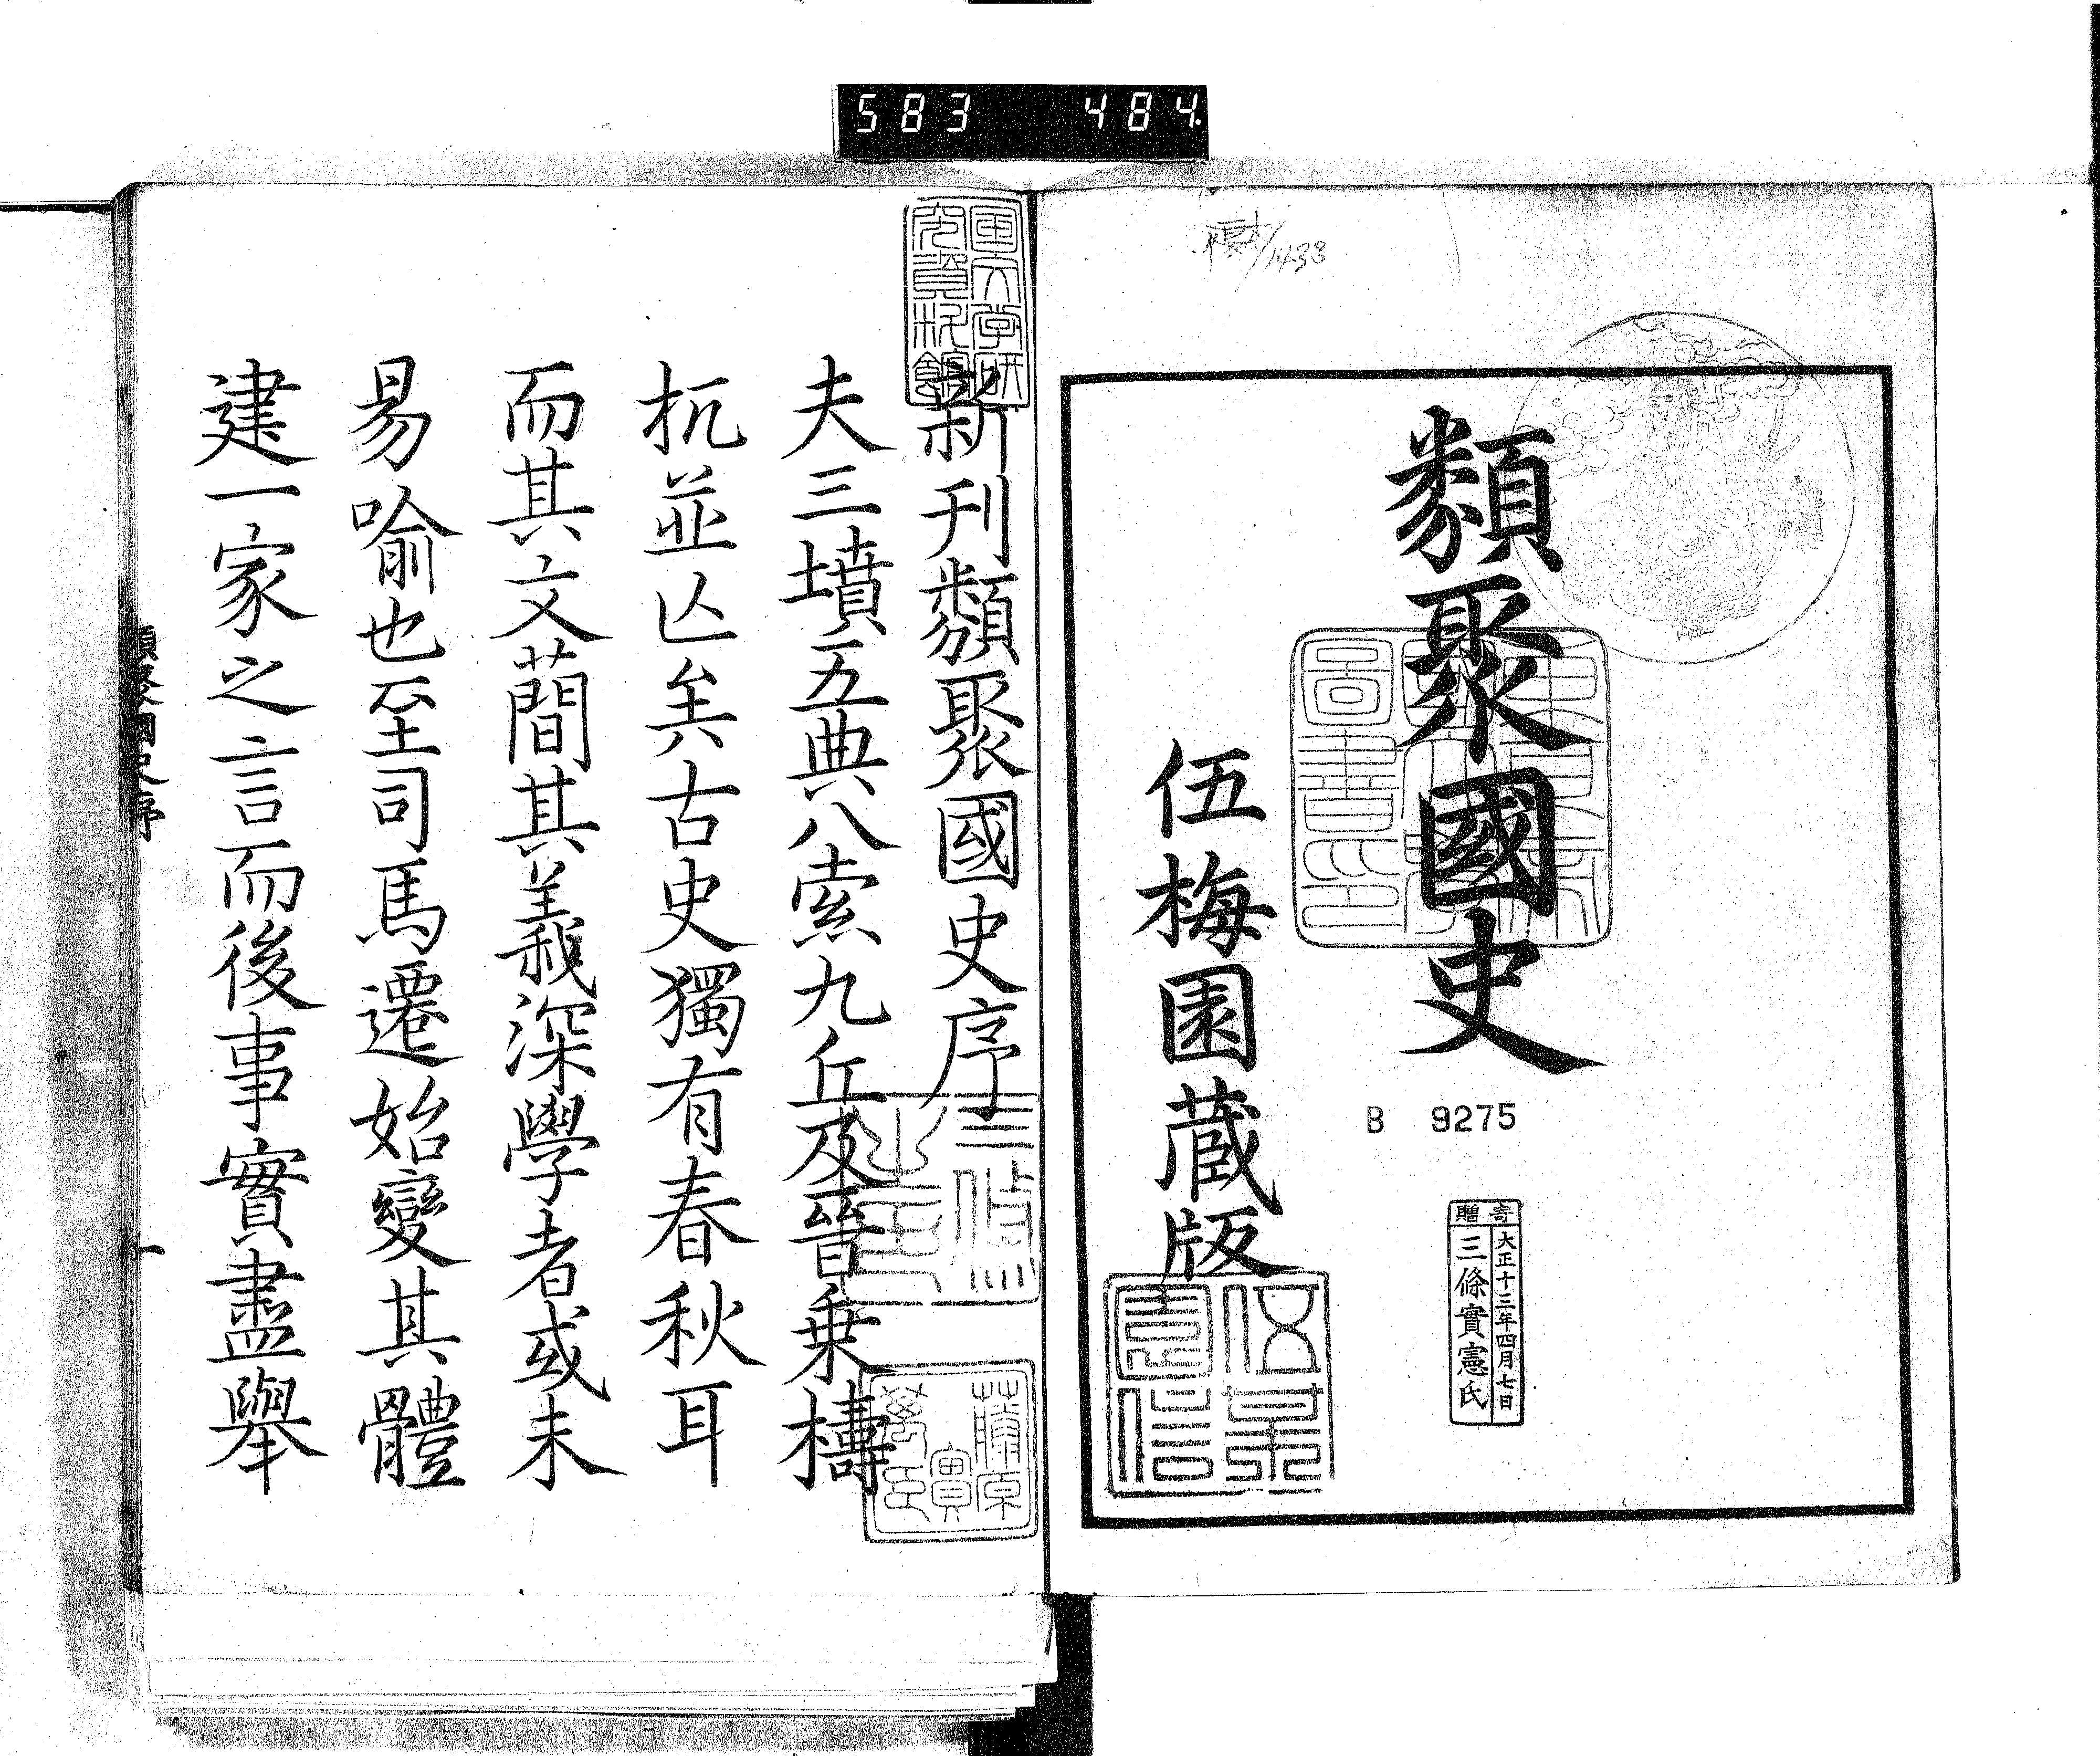 583 484.
類聚國史
伍梅園蔵版
B 9275
寄贈
大正十三年四月七日
三條實憲氏
新刊類聚國史序
夫三墳五典八索九丘及晉乗檮
杌並亾矣古史獨有春秋耳
而其文蕳其義深學者或未
易喩也至司馬遷始變其體
建一家之言而後事實盡擧
類聚國史序
一
國文学研
究資料館
藤原
實
萬